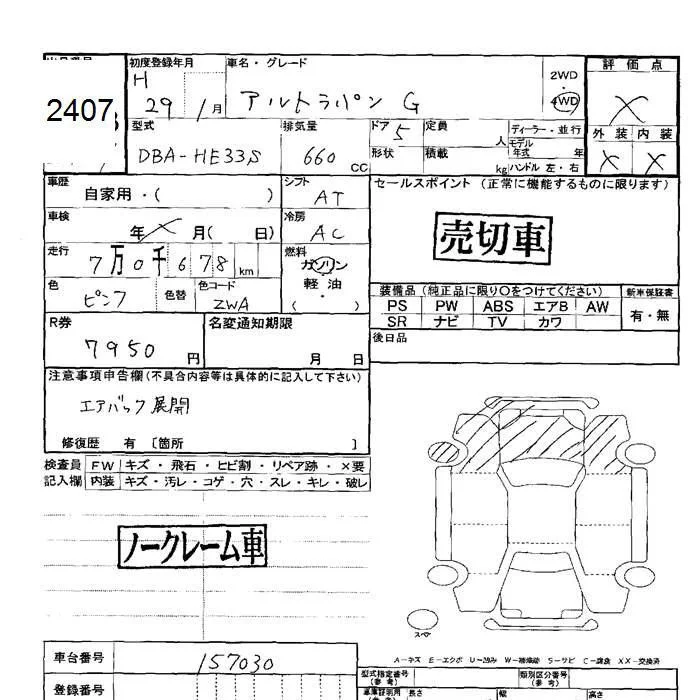 初度登録年月 車名・グレード 評価点
2407 H 29 1月 アルトラパン G 2WD 4WD X
型式 排気量 ドア 定員 ディーラー・並行 外装 内装
DBA-HE33S 660 CC 5 人 モデル年式 年 X X
形状 積載 kg ハンドル 左・右
車歴 自家用・( ) シフト AT セールスポイント (正常に機能するものに限ります)
車検 年 X 月( 日) 冷房 AC 売切車
走行 7万0千678 km 燃料 ガソリン 軽油 ・ ( )
色 ピンク 色替 色コード ZWA
装備品 (純正品に限り○をつけてください) 新車保証書
PS PW ABS エアB AW 有・無
SR ナビ TV カワ
後日品
R券 7950 円 名変通知期限 月 日
注意事項申告欄(不具合内容等は具体的に記入して下さい)
エアバック展開
修復歴 有 〔箇所 〕
検査員 FW キズ・飛石・ヒビ割・リペア跡・×要
記入欄 内装 キズ・汚レ・コゲ・穴・スレ・キレ・破レ
ノークレーム車
スペア
A-キズ E-エクボ U-凹み W-補修跡 S-サビ C-腐食 XX-交換済
車台番号 157030
型式指定番号 (参考) 類別区分番号 (参考)
登録番号
長さ 幅 高さ